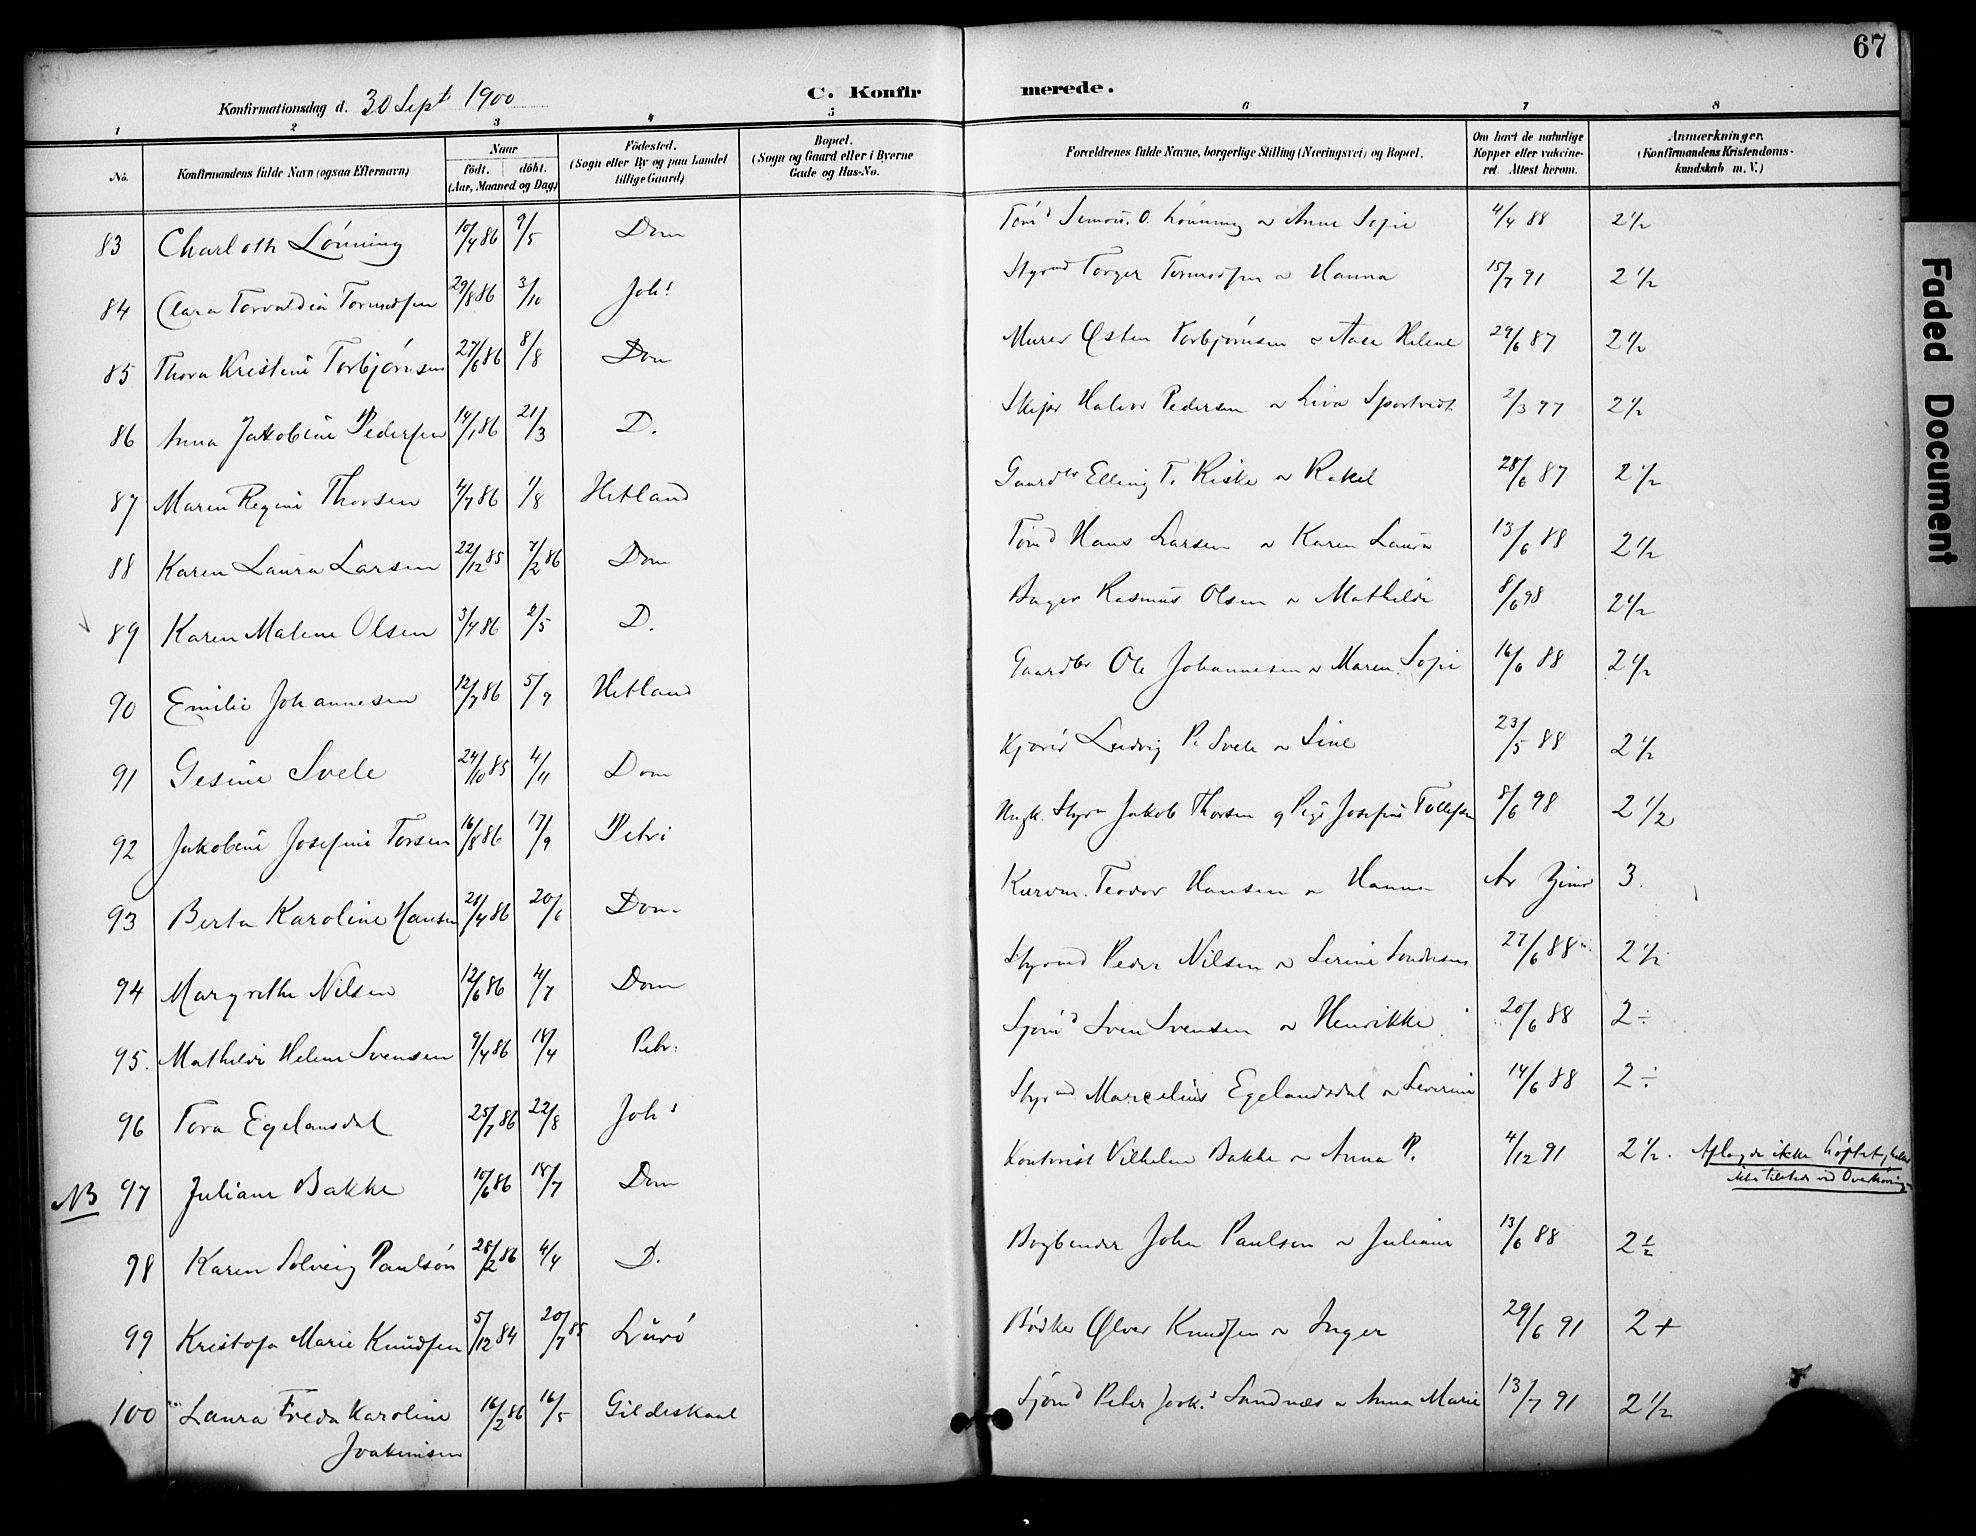 67
Konfirmationsdag d. 30 Sept 1900 C. Konfirmerede.
1 2 3 4 5 6 7 8
No. Konfirmandens fulde Navn (ogsaa Efternavn) Naar födt. döbt. (Aar, Maaned og Dag) Födested. (Sogn eller By og paa Landet tillige Gaard) Bopæl. (Sogn og Gaard eller i Byerne Gade og Hus-No. Forældrenes fulde Navne, borgerlige Stilling (Næringsvei) og Bopæl. Om havt de naturlige Kopper eller vakcineret. Attest herom. Anmærkninger. (Konfirmandens Kristendomskundskab m. V.)
83 Charloth Lönning 10/4 86 9/5 Dom Tömd Simon. O. Lönning Anne Sofie 4/4 88 2 1/2
84 Clara Torvaldia Tormodsen 29/8 86 3/10 Johs Styrmd Torger Tormodsen Hanna 15/7 91 2 1/2
85 Thora Kristine Torbjörnsen 27/6 86 8/8 Dom Murer Østen Torbjörnsen Aase Helene 29/6 87 2 1/2
86 Anna Jakobine Pedersen 14/1 86 21/3 D. Skipr Halvor Pedersen Liva 2/3 97 2 1/2
87 Maren Regine Thorsen 4/7 86 1/8 Hetland Gaardbr Elling T. Riske Rakel 28/6 87 2 1/2
88 Karen Laura Larsen 22/12 85 7/2 86 Dom Tömd Hans Larsen Karen Laura 13/6 88 2 1/2
89 Karen Malene Olsen 3/4 86 2/5 D. Bager Rasmus Olsen Mathilde 8/6 98 2 1/2
90 Emilie Johannesen 12/7 86 5/9 Hetland Gaardbr Ole Johannesen Maren Sofie 16/6 88 2 1/2
91 Gesine Svele 24/10 85 4/11 Dom Ludvig P. Svele Sine 23/5 88 2 1/2
92 Jakobine Josefine Torsen 16/8 86 17/9 Petri Ungk. Styrm Jakob Thorsen og Pige Josefine Tollefsen 8/6 98 2 1/2
93 Berta Karoline Hansen 28/4 86 20/6 Dom Kurvm. Teodor Hansen Hanna 3.
94 Margrethe Nilsen 12/6 86 4/7 Dom Styrmd Peder Nilsen Serine 27/6 88 2 1/2
95. Mathilde Helene Svensen 9/4 86 18/4 Petr. Sjömd Sven Svensen Henrikke 20/6 88 2 ÷
96 Tora Egelandsdal 25/7 86 22/8 Johs Styrmd Marcelius Egelandsdal Severine 14/6 88 2 ÷
NB 97 Juliane Bakke 10/6 86 18/7 Dom Kontorist Vilhelm Bakke Anna P. 4/12 91 2 1/2. Aflagde ikke Löftet, heller
ikke tilstede ved Overhöring
98 Karen Solveig Paulsön 28/2 86 4/4 D. Bogbinder John Paulson Juliane 13/6 88 2 1/2
99 Kristofa Marie Knudsen 5/12 84 20/7 85 Lurö Bödker Ølver Knudsen Inger 29/6 91 2 +
100 Laura Freda Karoline 16/2 86 16/5 Gildeskaal Sjömd Peter Joak. Sandnæs Anna Marie 13/7 91 2 1/2
Joakimsen
Faded Document